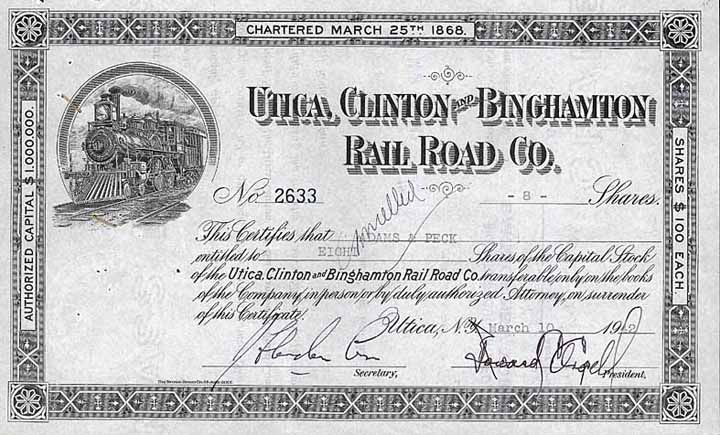 CHARTERED MARCH 25TH 1868.
AUTHORIZED CAPITAL $1,000,000.
SHARES $100 EACH.
UTICA, CLINTON AND BINGHAMTON
RAIL ROAD CO.
No. 2633
- 8 - Shares.
Cancelled
This Certifies that DAMS & PECK
entitled to EIGHT Shares of the Capital Stock
of the Utica, Clinton and Binghamton Rail Road Co. transferable only on the books
of the Company, in person or by duly authorized Attorney, on surrender
of this Certificate.
Utica, N.Y. March 10 1942
Secretary,
President,